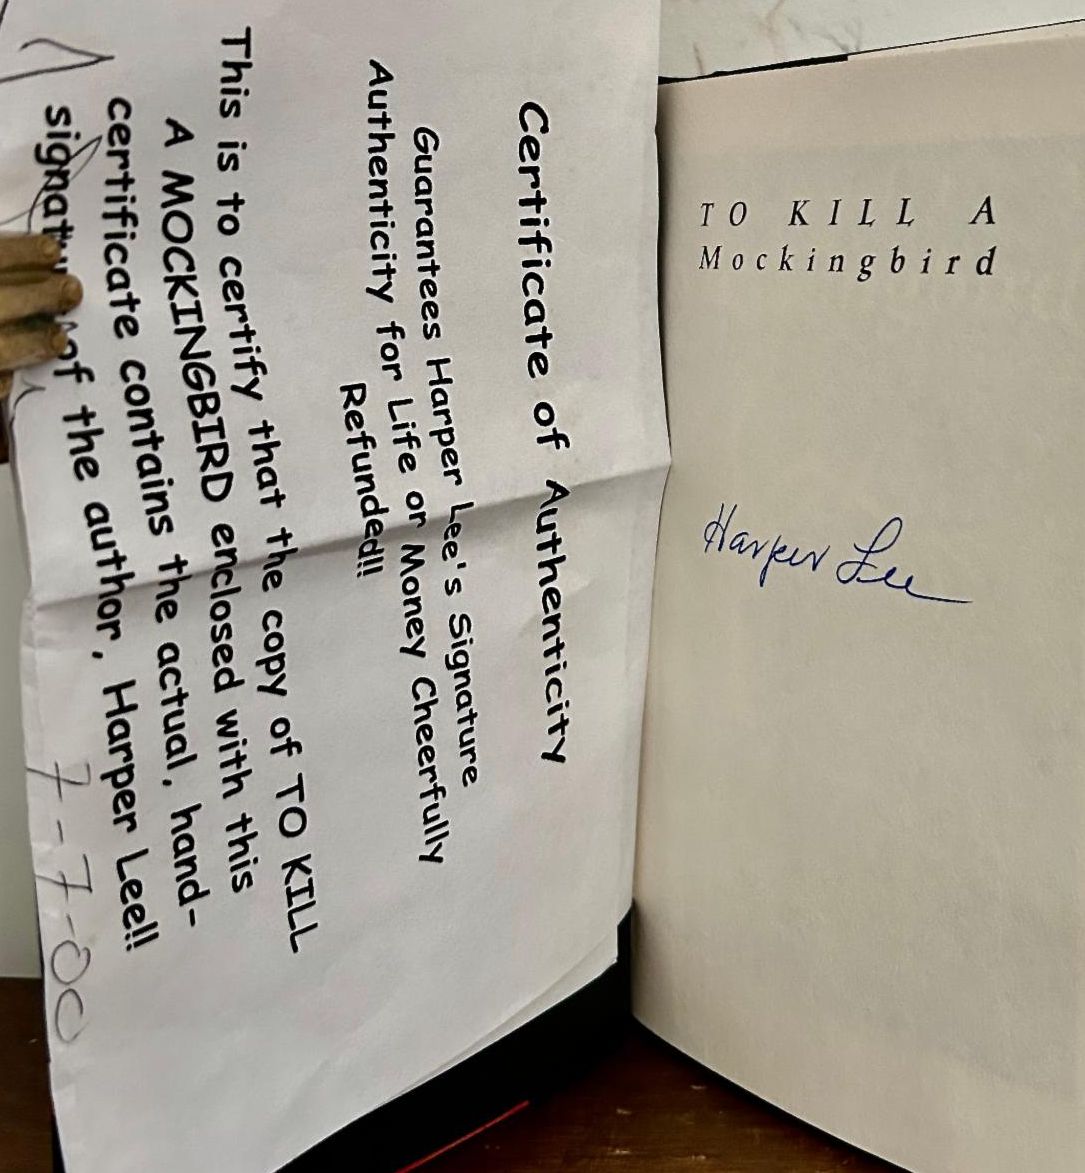 Certificate of Authenticity
Guarantees Harper Lee's Signature
Authenticity for Life or Money Cheerfully
Refunded!!!
This is to certify that the copy of TO KILL
A MOCKINGBIRD enclosed with this
certificate contains the actual, hand-
of the author, Harper Lee!!!
7-7-00
TO KILL A
Mockingbird
Harper Lee